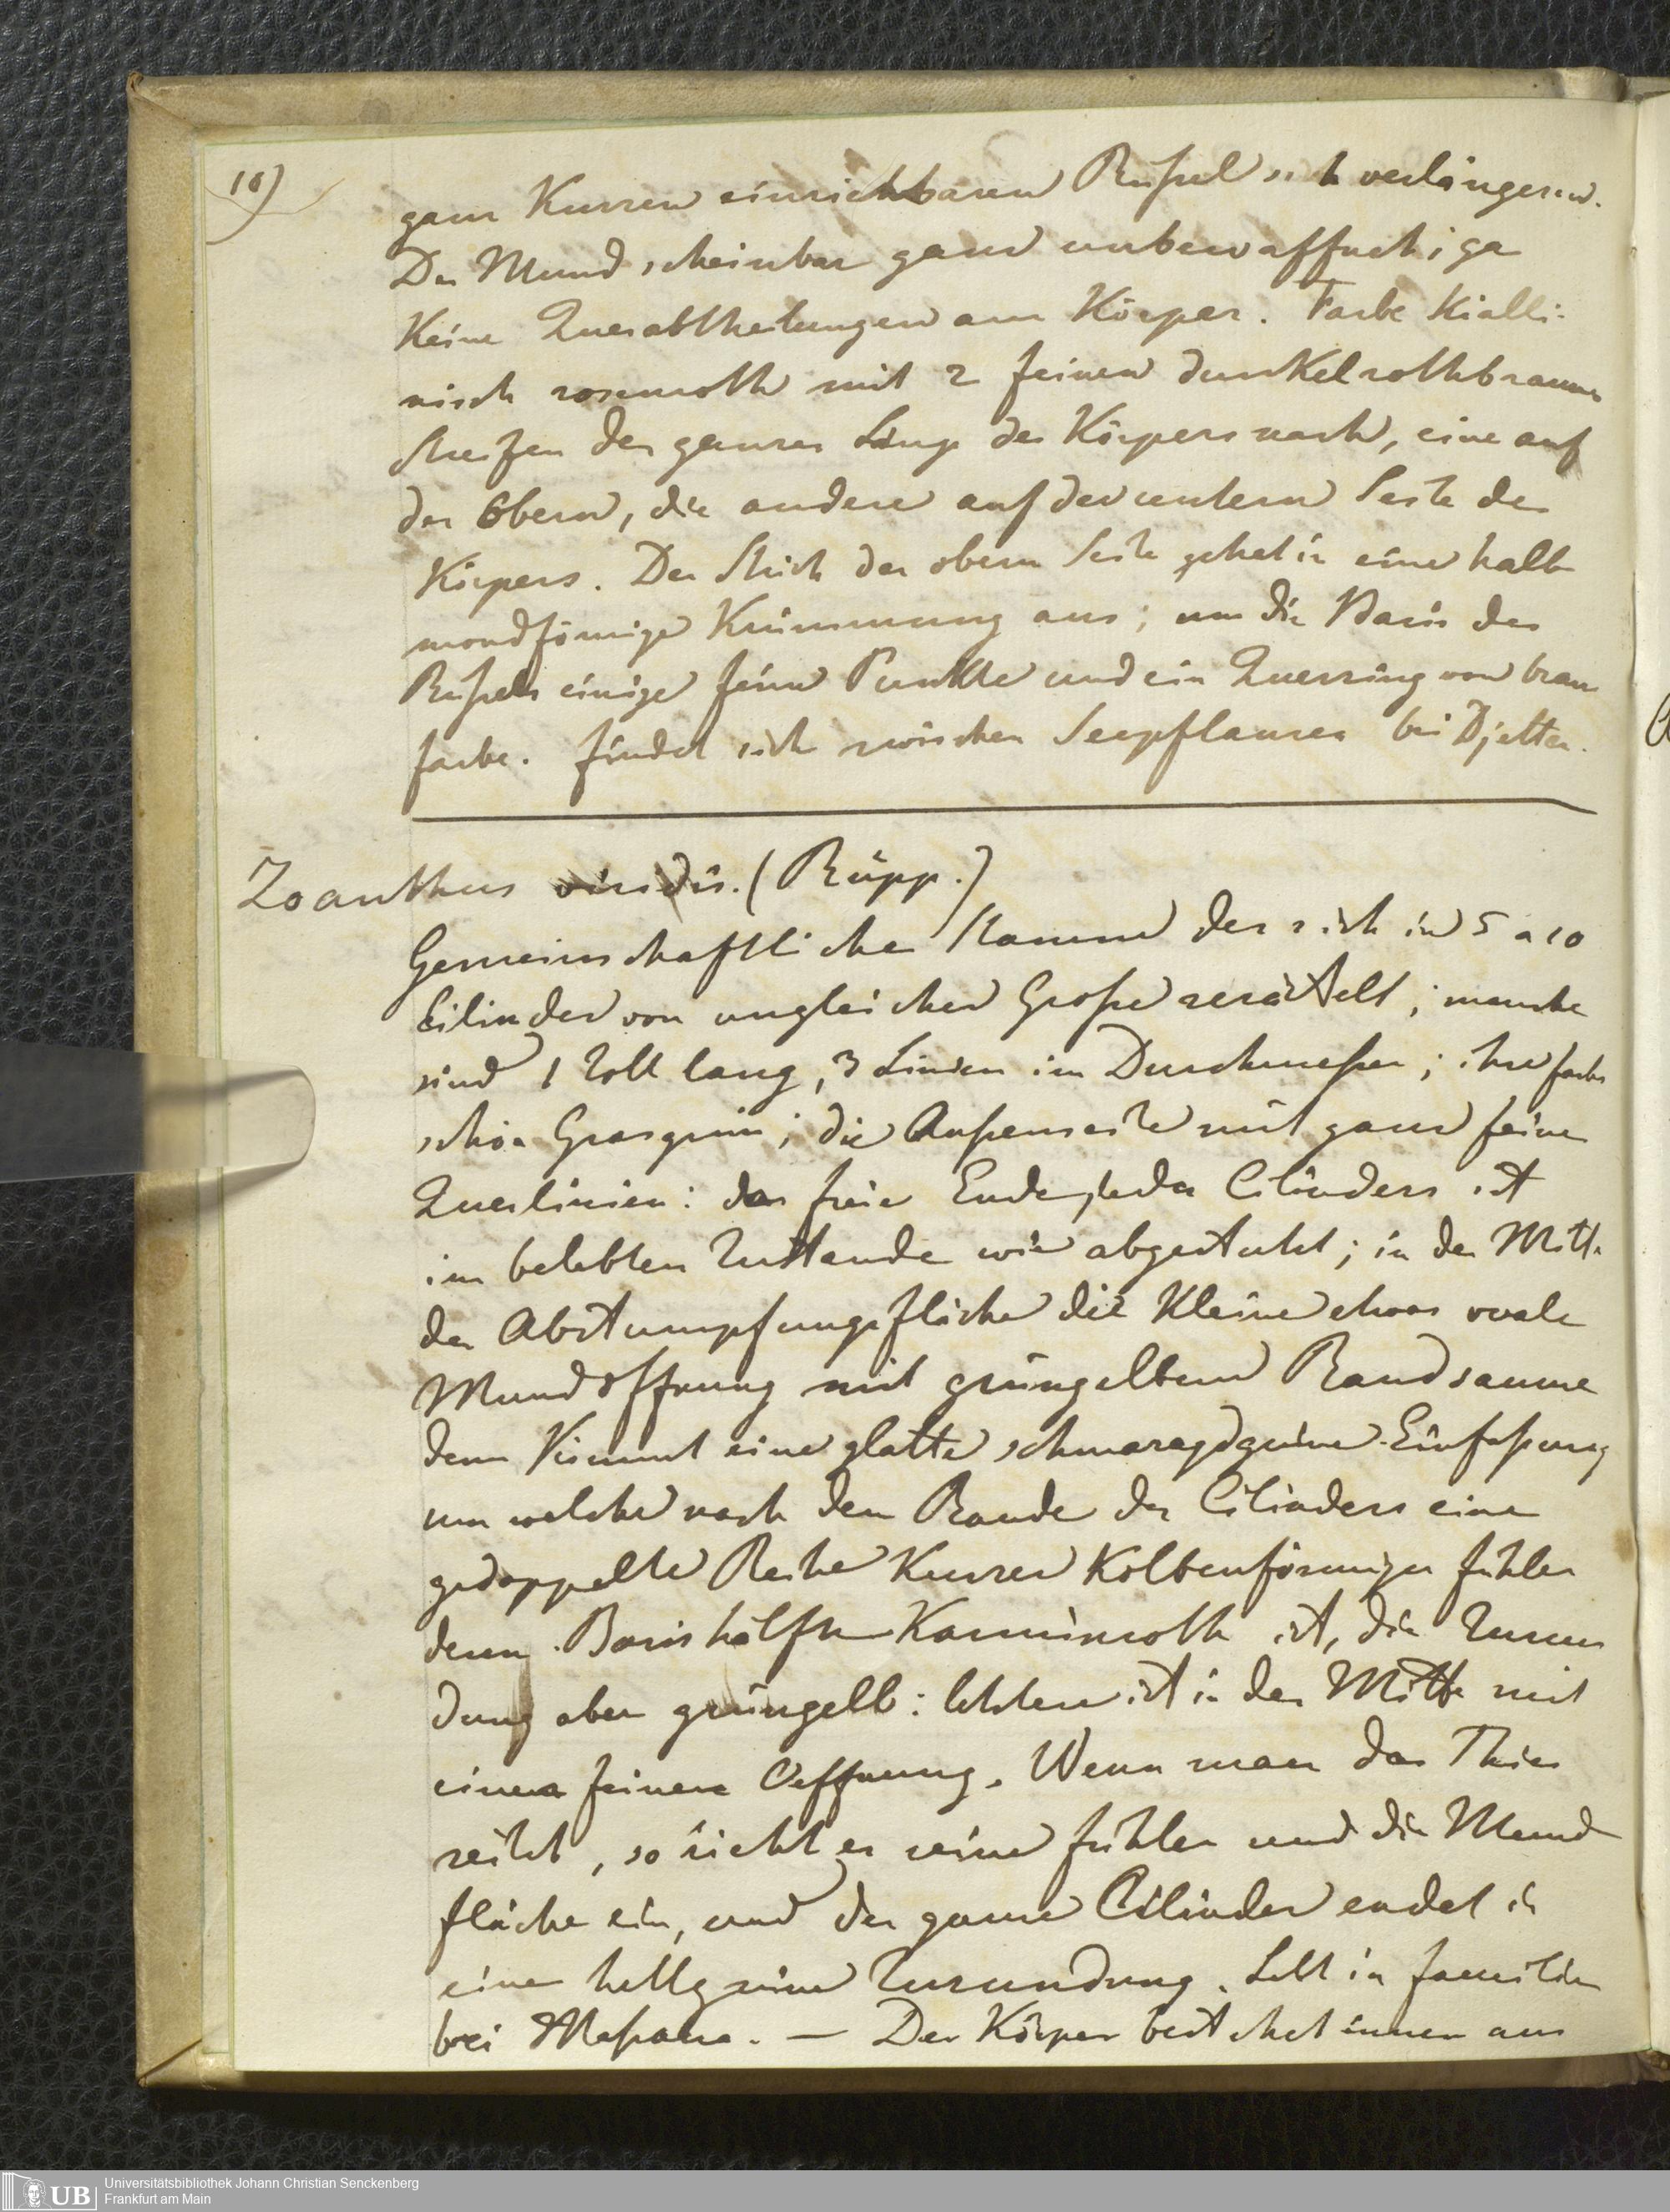 18)
ganz Kurzen einziehbaren Rüßel sich verlängernd.
Der Mund scheinbar ganz unbewaffnet;
Keine Querabtheilungen am Körper. Farbe
rosenroth mit 2 feinen dunkelrothbraunen
Streifen der ganzen Länge des Körpers nach, eine auf
der Obern, die andere auf der untern Seite des
Körpers. Der Strich der obern Seite gehet in eine halb
mondförmige Krümmung aus; um die Basis des
Rüßels einige feine Punkte und ein Querring von braun
farbe. findet sich zwischen Seepflanzen bei Djetta.
Zoanthus viridis. (Rüpp.)
Gemeinschaftlicher Stamm der sich in 5 a 10
Cilinder von ungleicher Große zerästelt; manche
sind 1 Zoll lang, 3 Linien im Durchmeßer; ihre farbe
schön Grasgrün; die Außenseite mit ganz feinen
Querlinien: das freie Ende jedes Cilinders ist
im belebten Zustande wie abgestutzt; in der Mitte
der Abstumpfungsfläche die Kleine etwas ovale
Mundöffnung mit grüngelbem Randsaume
dann Kömmt eine glatte schmaragdgrüne Einfaßung
um welche nach dem Rande des Cilinders eine
gedoppelte Reihe Kurzer Kolbenförmiger fühler
deren Basishälfte Karminroth ist, die Zurun
dung aber grüngelb: letztere ist in der Mitte mit
einer feinen Oeffnung. Wenn man das Thier
reitzt, so zieht es seine fühler und die Mund
fläche ein, und der ganze Cilinder endet in
eine hellgrüne Zurundung. Lebt in familien
bei Maßaua. — Der Körper bestehet innen aus
Universitätsbibliothek Johann Christian Senckenberg
Frankfurt am Main
UB